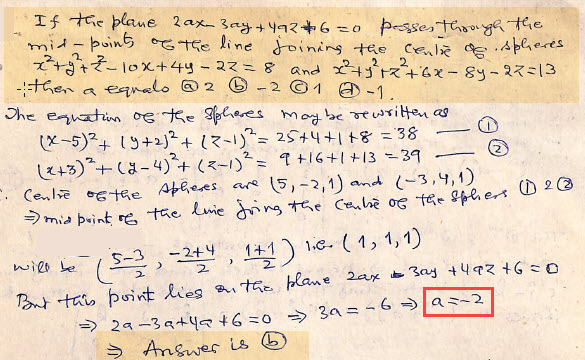 If the plane 2ax-3ay+4az+6=0 passes through the
mid-point of the line joining the centre of spheres
x²+y²+z²-10x+4y-2z=8 and x²+y²+z²+6x-8y-2z=13
then a equals (a) 2 (b) -2 (c) 1 (d) -1
The equation of the spheres may be rewritten as
(x-5)²+(y+2)²+(z-1)²=25+4+1+8=38 — (1)
(x+3)²+(y-4)²+(z-1)²=9+16+1+13=39 — (2)
Centre of the spheres are (5,-2,1) and (-3,4,1)
⇒ mid point of the line joing the centre of the sphers (1) 2 (2)
will be (5-3/2, -2+4/2, 1+1/2) i.e. (1,1,1)
But this point lies on the plane 2ax-3ay+4az+6=0
⇒ 2a-3a+4a+6=0 ⇒ 3a=-6 ⇒ a=-2
⇒ Answer is (b)